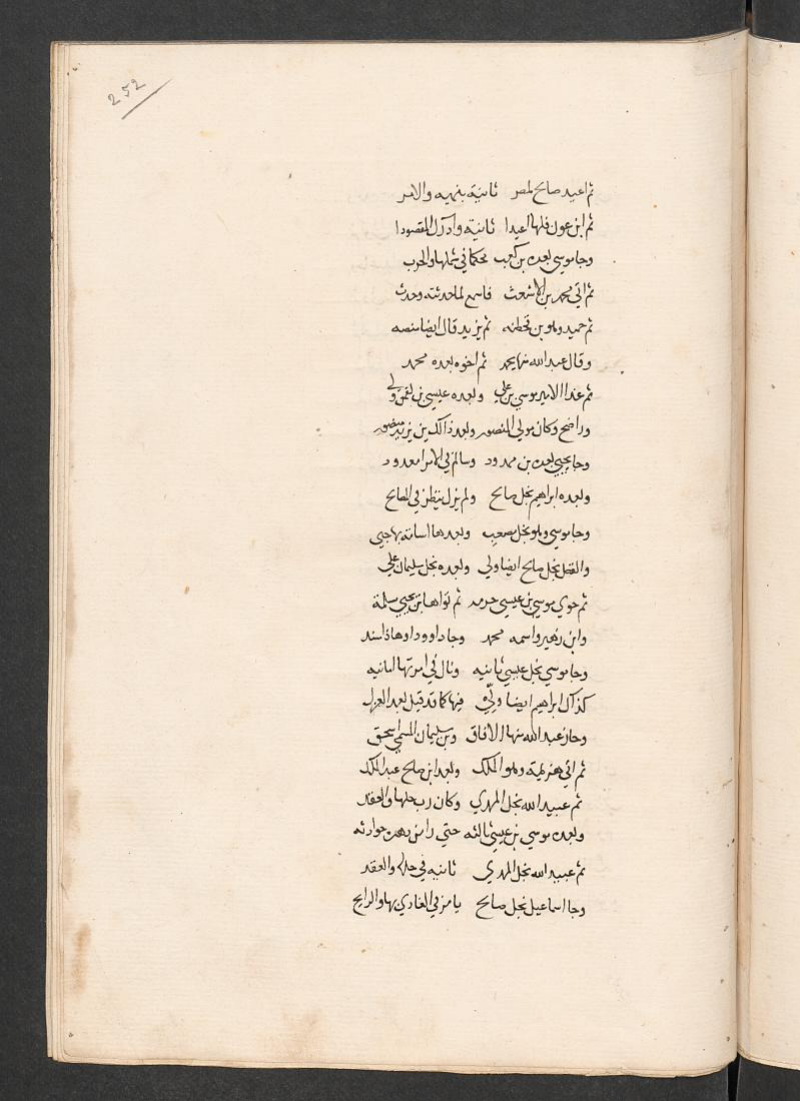 252
ثم اعيد صالح لمصر ثانية بنهيه والامر
ثم ابن عون فلها اعيدا ثانية وادرك المقصودا
وجا موسي بعده بن كعب محكما في سلمها والحرب
ثم اتي محمد بن الاشعث فاسمع لما حدثته وحدث
ثم حميد وهو بن قحطبه ثم يزيد قال ايضا منصبه
وقال عبد الله منها يحمد ثم اخوه بعده محمد
ثم غدا الامير موسي بن علي وبعده عيسي بن لقمن ولي
وراضح وكان مولي المنصور وبعد ذالك بن يزيد منصور
وجا يحيي بعده بن ممدود وسالم في الامرا معدود
وبعده ابراهيم نجل صالح ولم يزل ينظر في المصالح
وجا موسي وهو نجل مصعب وبعدها اسامة بها حبي
والفضل نجل صالح ايضا ولي وبعده نجل سليمان علي
ثم حوي موسي بن عيسي حرمه ثم تواها بن يحيي سلمة
وابن زهير واسمه محمد وجا داوود وهاذا سند
وجا موسي نجل عيسي ثانيه ونال في امرتها امانيه
كذاك ابراهيم ايضا ولي فيها كما قد قيل بعد العزل
وحاز عبد الله منها الافاق وبن سليمان المسمي اسحق
ثم اتي هزيمة وهو الملك وبعد ابن صالح عبد الملك
ثم عبيد الله نجل المهدي وكان رب حلها والعقد
وبعده موسي بن عيسي ثالثه حتي راس دهره حوادثه
ثم عبيد الله نجل المهدي ثانيه في حلها والعقد
وجا اسماعيل نجل صالح يامر في الغادي بها والرايح